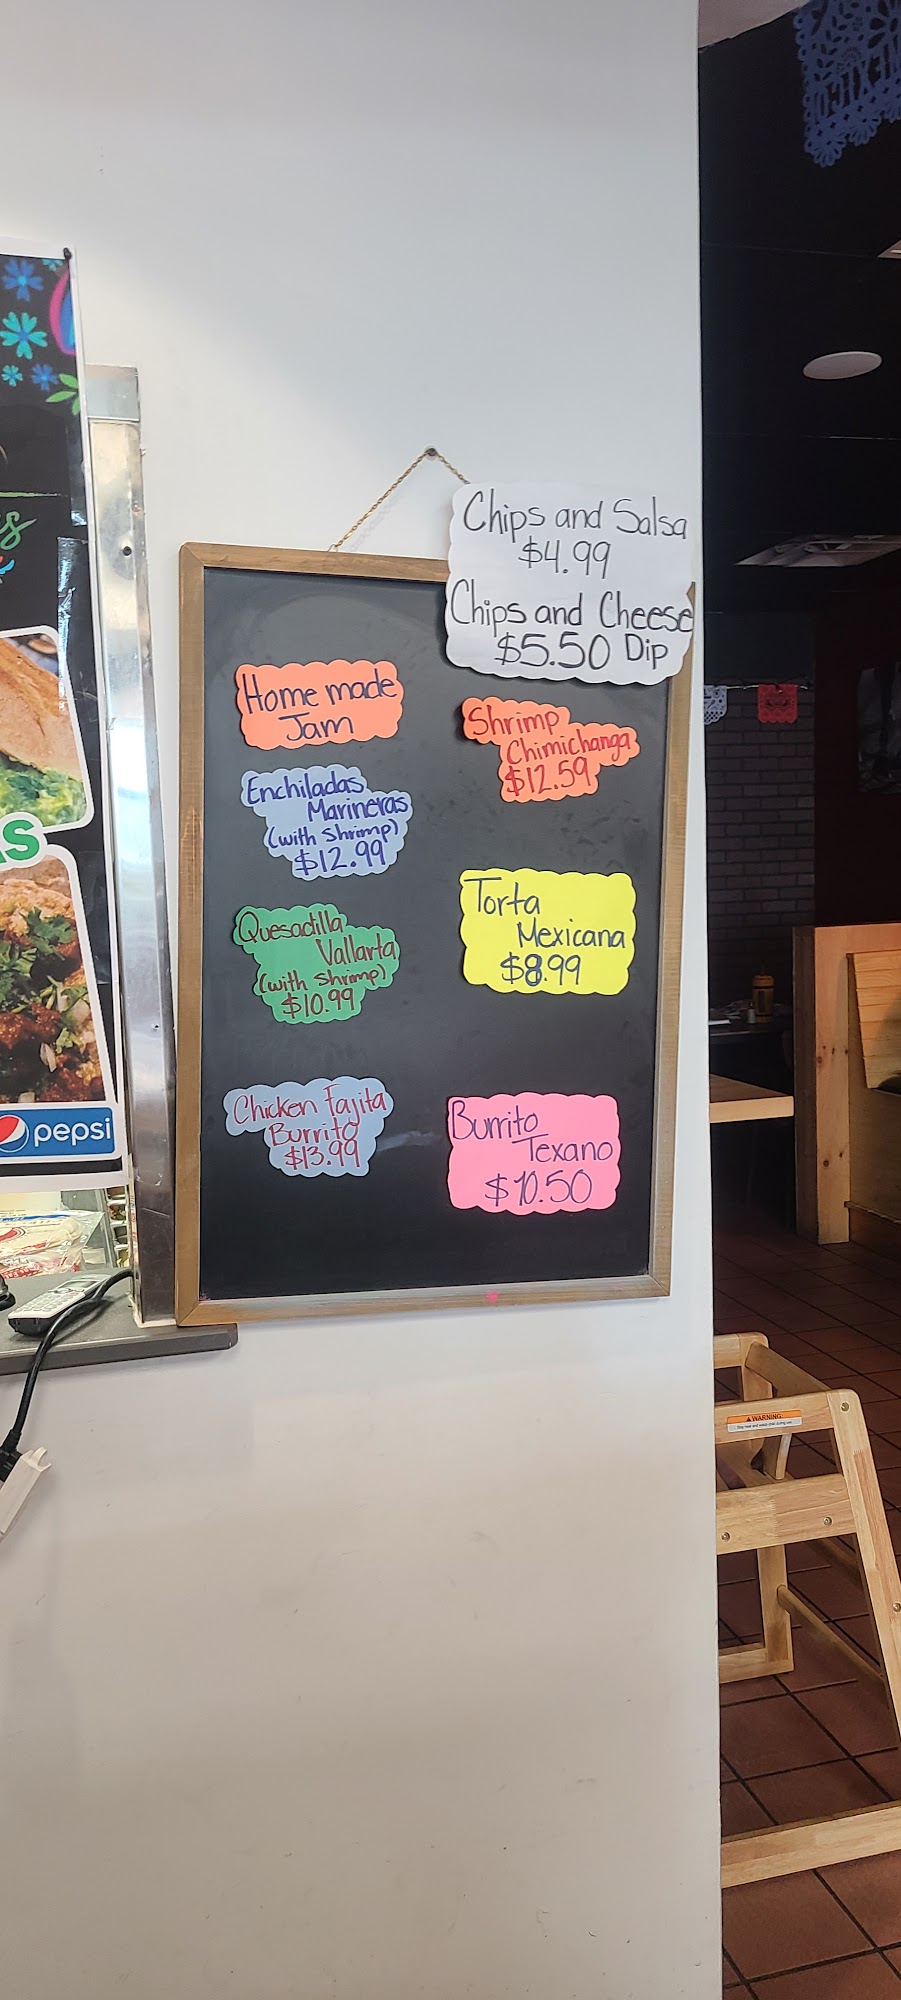 Chips and Salsa
$4.99
Chips and Cheese
$5.50 Dip
Home made
Jam
Enchiladas
Marineras
(with Shrimp)
$12.99
Quesadilla
Vallarta
(with Shrimp)
$10.99
Chicken Fajita
Burrito
$13.99
Shrimp
Chimichanga
$12.59
Torta
Mexicana
$8.99
Burrito
Texano
$10.50
pepsi
WARNING: